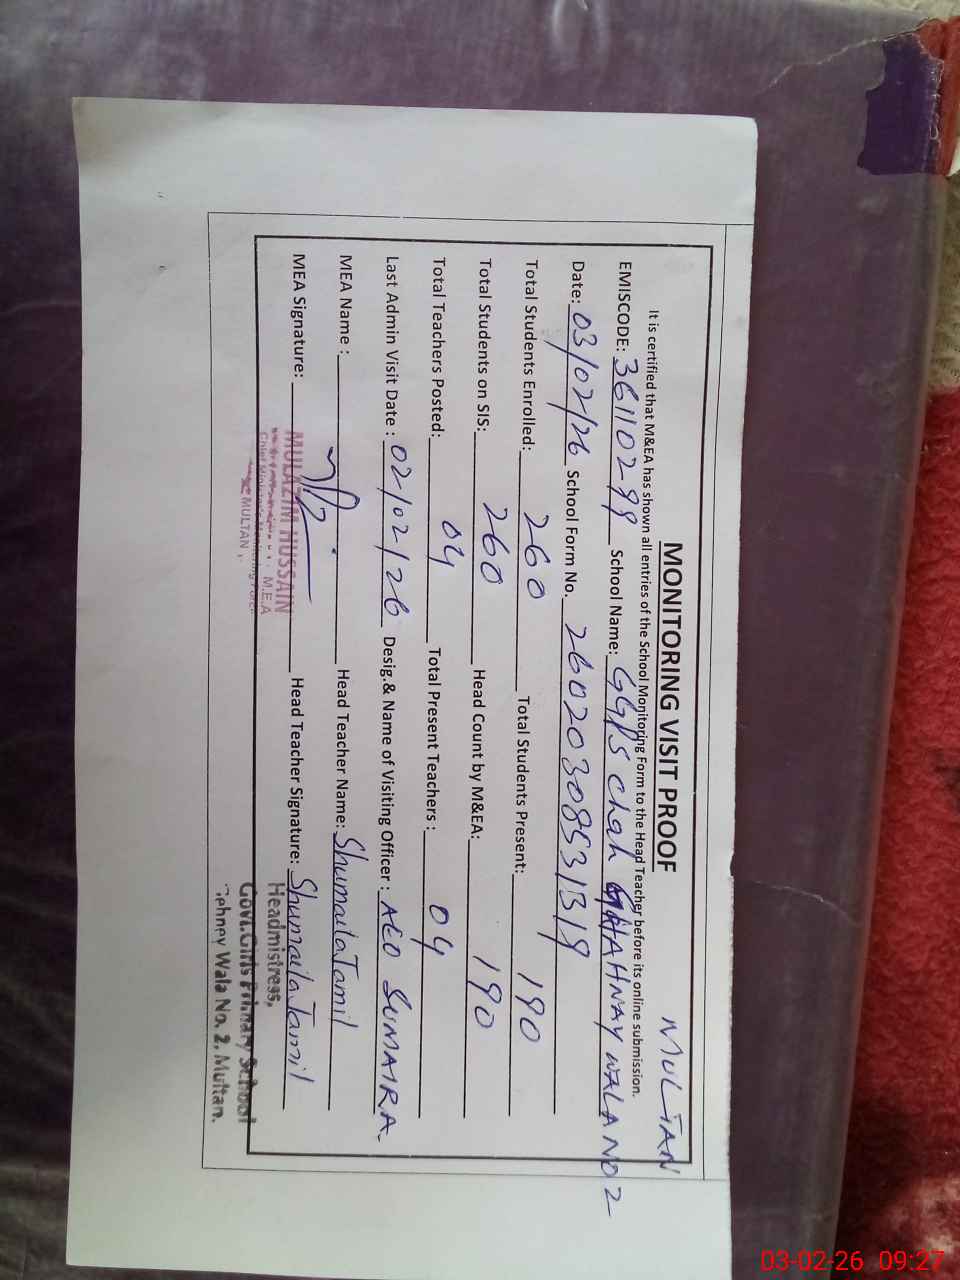 MULTAN
MONITORING VISIT PROOF
It is certified that M&EA has shown all entries of the School Monitoring Form to the Head Teacher before its online submission.
EMISCODE: 36110299 School Name: GGPS Chah CHAHNAY WALA NO 2
Date: 03/02/26 School Form No. 26020308531319
Total Students Enrolled: 260 Total Students Present: 190
Total Students on SIS: 260 Head Count by M&EA: 190
Total Teachers Posted: 04 Total Present Teachers : 04
Last Admin Visit Date : 02/02/26 Desig.& Name of Visiting Officer : AEO SUMAIRA.
MEA Name : Head Teacher Name: Shumaila Jamil
MEA Signature: Head Teacher Signature: Shumaila Jamil
MULAZIM HUSSAIN
M.E.A
Chief Minister's Monitoring Force
MULTAN
Headmistress,
Govt. Girls Primary School
Wala No. 2, Multan.
03-02-26 09:27